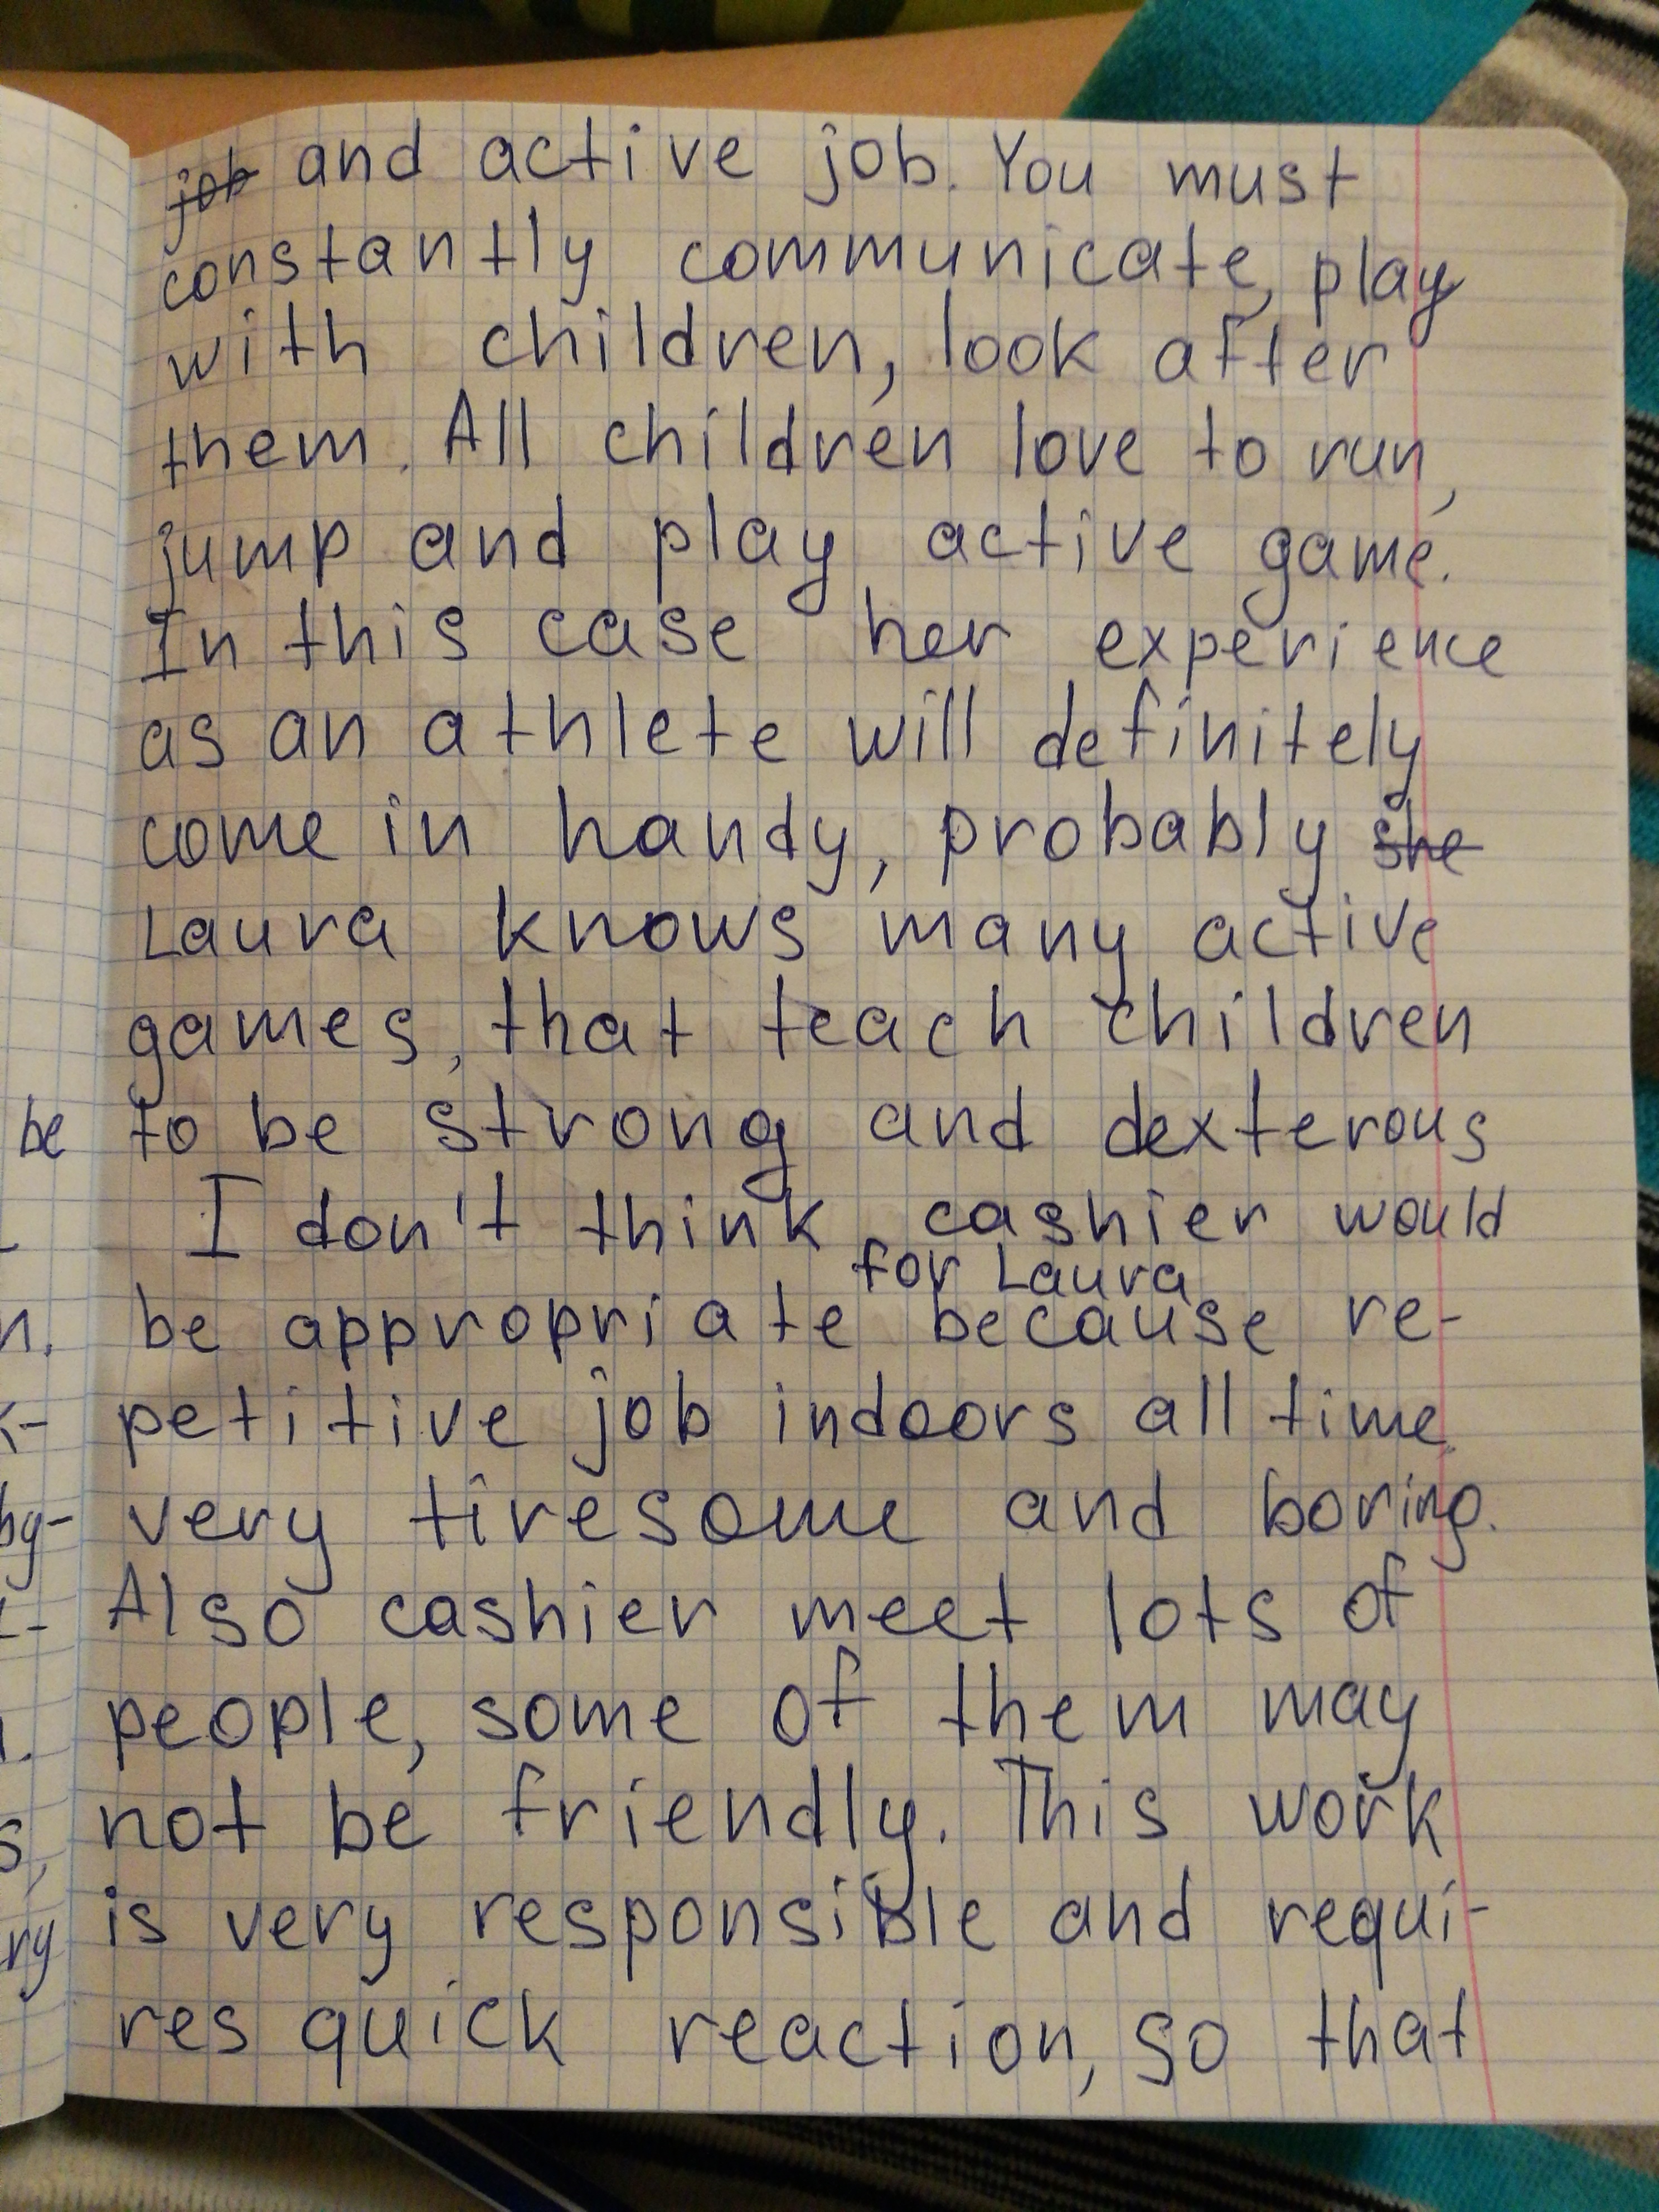 job and active job. You must
constantly communicate, play
with children, look after
them. All children love to run,
jump and play active game.
In this case her experience
as an athlete will definitely
come in handy, probably she
Laura knows many active
games, that teach children
be
to be strong and dexterous
I don't think cashier would
for Laura
be appropriate because re-
petitive job indoors all time
very tiresome and boring.
Also cashier meet lots of
people, some of them may
not be friendly. This work
is very responsible and requi-
res quick reaction, so that